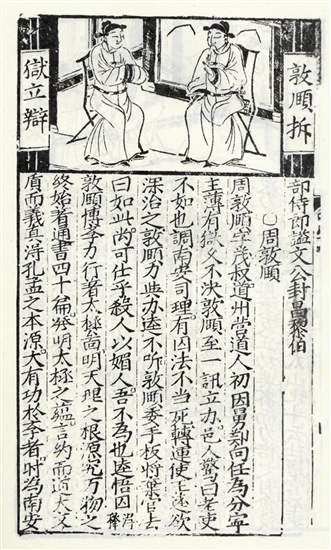 敦頤拆
獄立辯
部侍郎謚文公封昌黎伯
周敦頤
周敦頤字茂叔道州營道人初因舅鄭向任為分寧
主薄有獄久不決敦頤至一訊立办邑人驚曰老吏
不如也調南安司理有囚法不當死轉運使王逵欲
深治之敦頤力與办逵不听敦頤委手板將棄官去
曰如此尚可仕乎殺人以媚人吾不為也逵悟囚得釋
敦頤博孝力行著太極啚明天理之根源究万物之
終始著通書四十篇發明太極之蘊言約而道大文
質而義真得孔孟之本源大有功於孝者时為南安